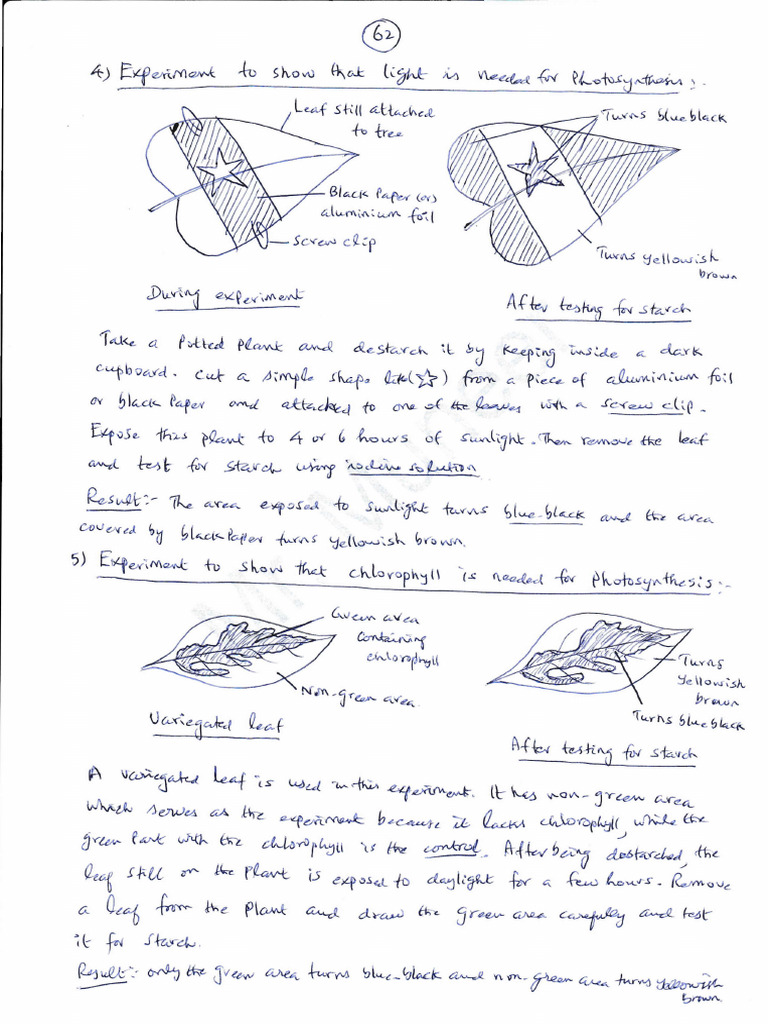 62
4) Experiment to show that light is needed for Photosynthesis:-
Leaf still attached
to tree
Black Paper (or)
aluminium foil
Screw clip
During experiment
Turns blue black
Turns yellowish
brown
After testing for starch
Take a Potted Plant and destarch it by keeping inside a dark
cupboard. Cut a simple shape like(☆) from a piece of aluminium foil
or black Paper and attacked to one of the leaves with a screw clip.
Expose this plant to 4 or 6 hours of sunlight. Then remove the leaf
and test for starch using iodine solution
Result:- The area exposed to sunlight turns blue-black and the area
covered by black Paper turns yellowish brown.
5) Experiment to show that chlorophyll is needed for Photosynthesis:-
Green area
containing
chlorophyll
Non-green area.
Variegated leaf
Turns
yellowish
brown
Turns blue black
After testing for starch
A variegated leaf is used in this experiment. It has non-green area
which serves as the experiment because it lacks chlorophyll, while the
green Part with the chlorophyll is the control. After being destarched, the
leaf still on the Plant is exposed to daylight for a few hours. Remove
a leaf from the Plant and draw the green area carefully and test
it for starch.
Result:- only the green area turns blue-black and non-green area turns yellowish
brown.